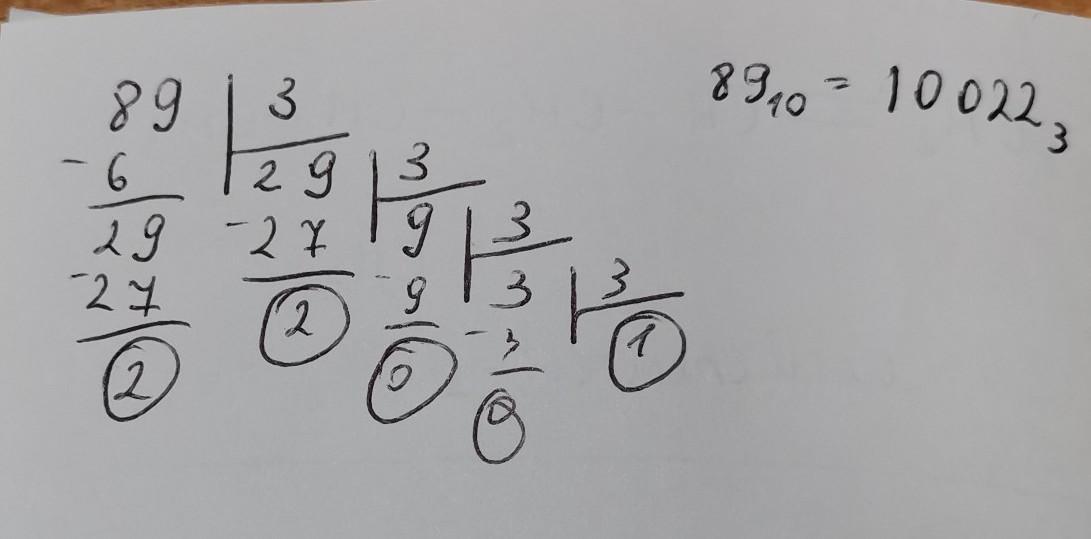 89 3 89₁₀ = 10022₃
-6 29 3
29 -27 9 3
-27 2 -9 3 3
2 0 -3 1
0